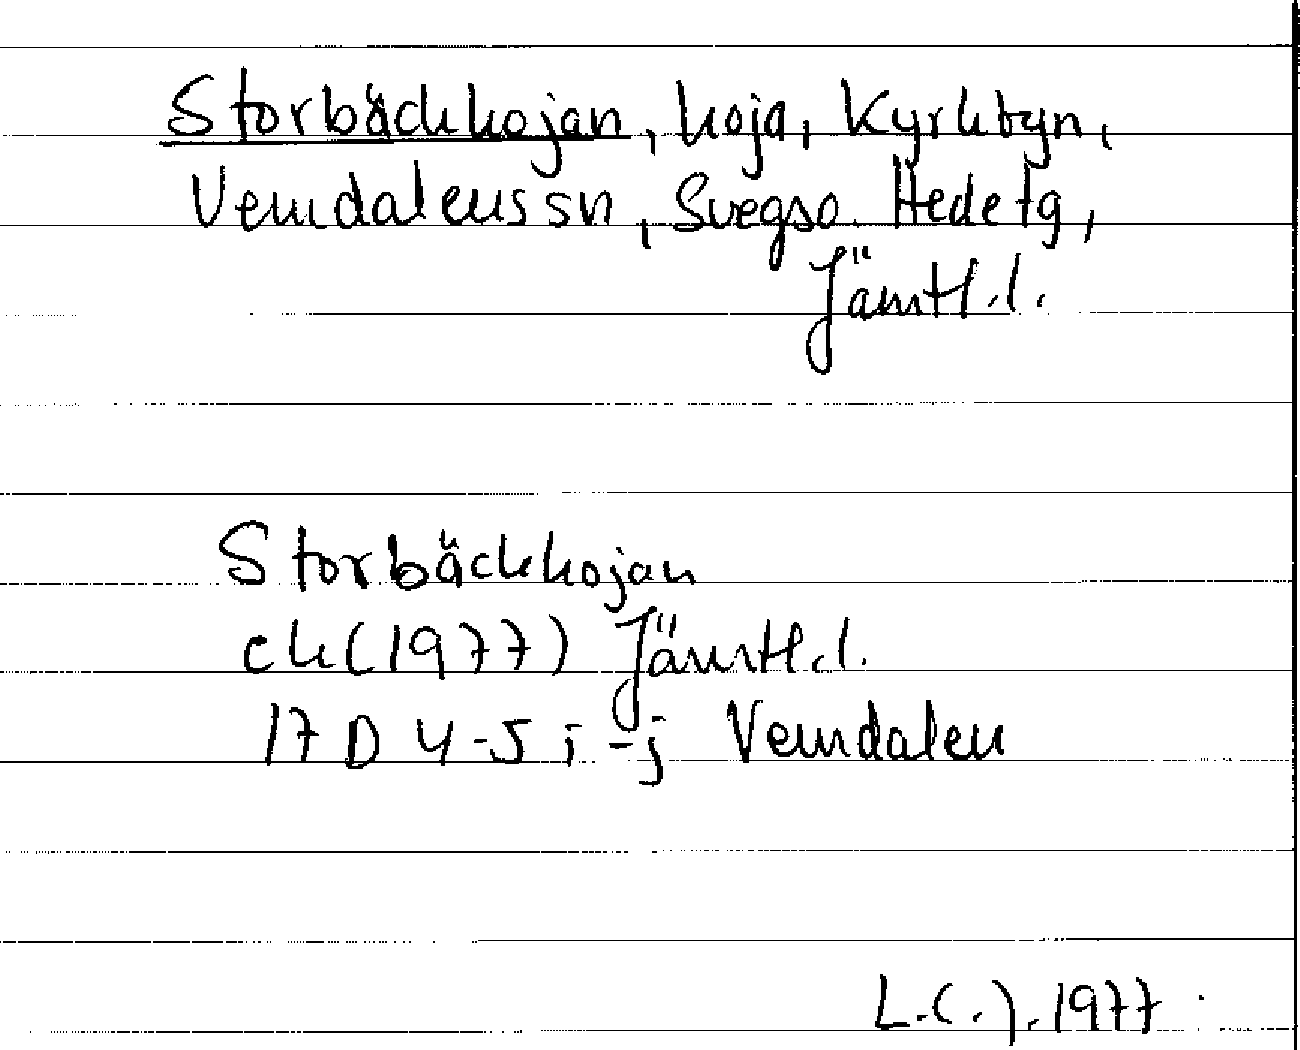 Storbäckkojan, koja, Kyrkbyn,
Vemdalens sn, Svegs o. Hede tg,
Jämtl. l.
Storbäckkojan
ek (1977) Jämtl. l.
17 D 4-5 i-j Vemdalen
L.(.). 1977